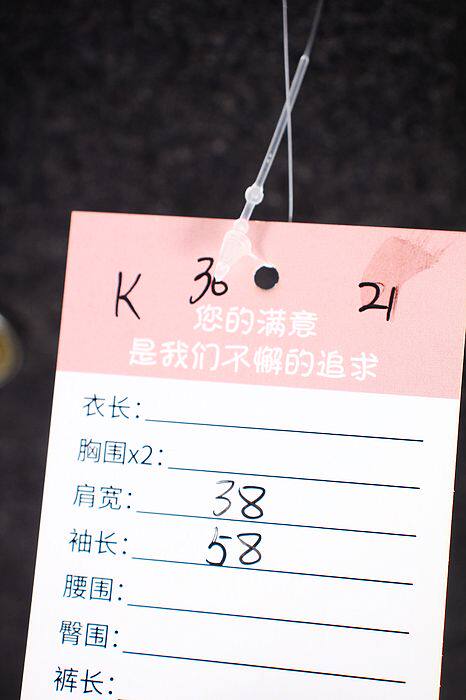 K 30 21
您的满意
是我们不懈的追求
衣长：
胸围x2：
肩宽： 38
袖长： 58
腰围：
臀围：
裤长：